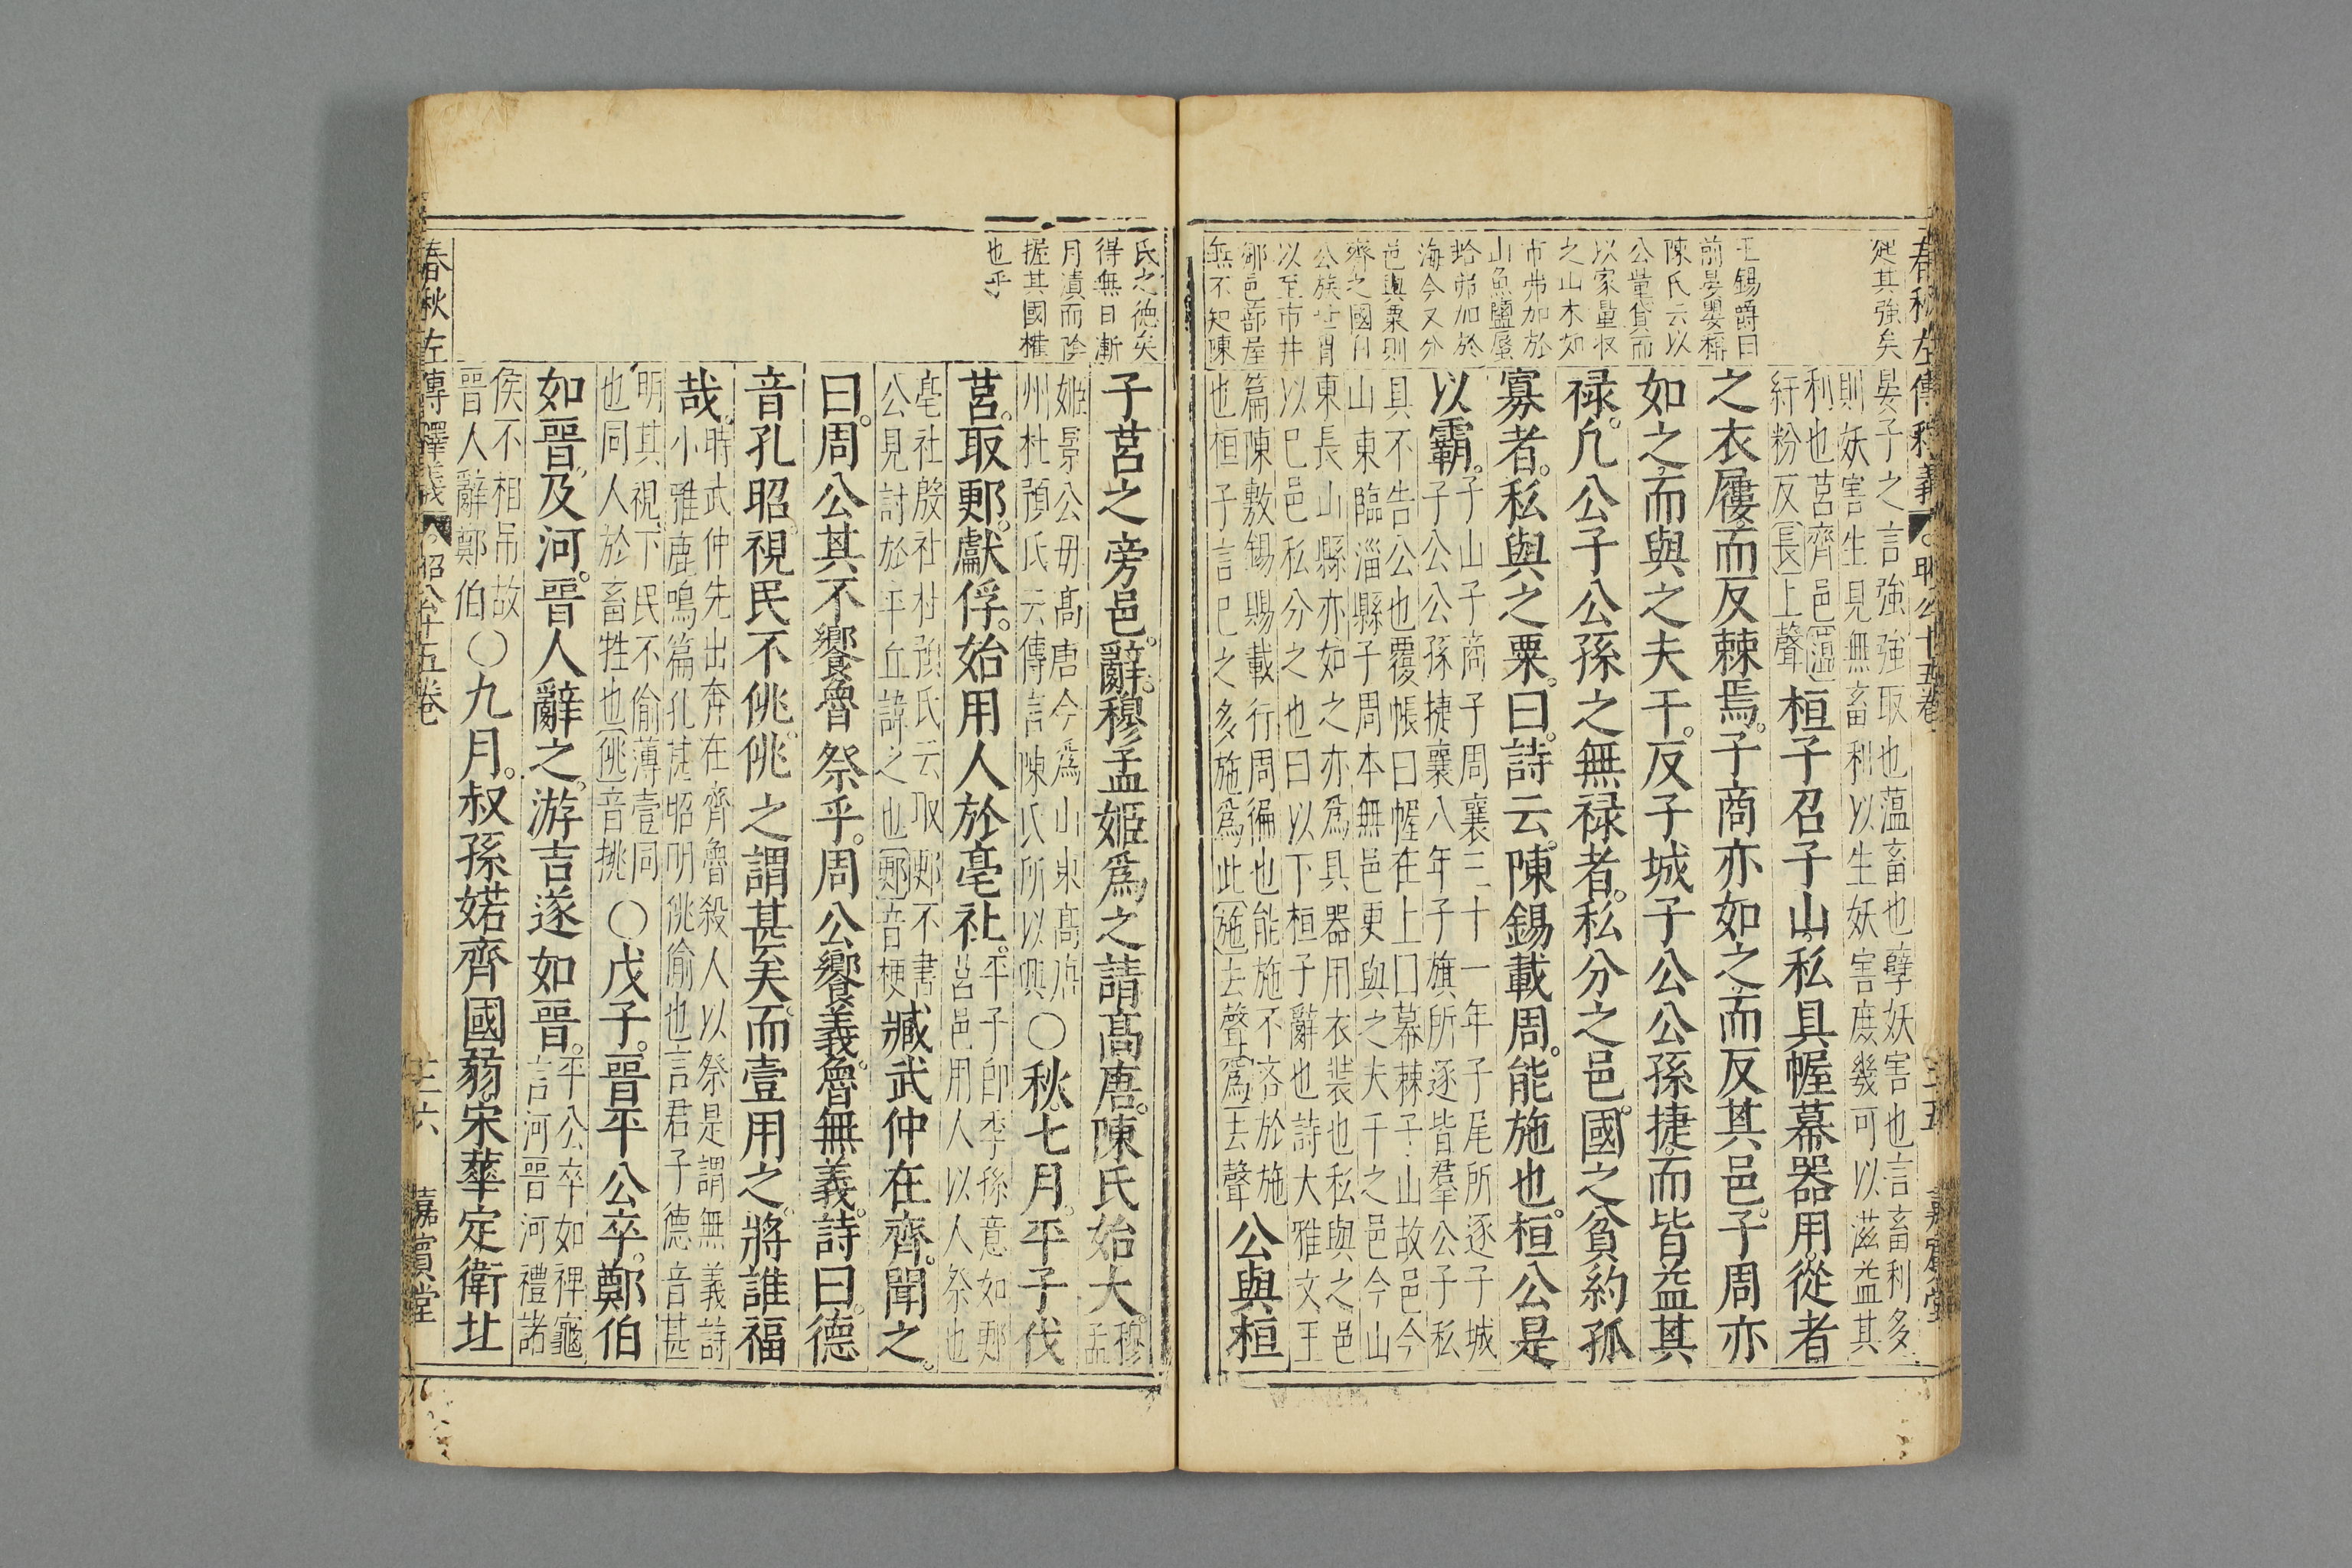 春秋左傳釋義
昭公十五卷
三五
嘉賓堂
起其強矣
王錫爵曰
前晏嬰稱
陳氏云以
公量貸而
以家量收
之山木如
市弗加於
山魚鹽蜃
蛤弗加於
海今又分
邑與粟則
齊之國自
公族世胄
以至市井
鄉邑蔀屋
無不知陳
晏子之言強強取也薀畜也孽妖害也言畜利多
則妖害生見無畜利以生妖害庶幾可以滋益其
利也莒齊邑薀
紆粉反長上聲
桓子召子山私具幄幕器用從者
之衣屨而反棘焉子商亦如之而反其邑子周亦
如之而與之夫于反子城子公公孫捷而皆益其
祿凡公子公孫之無祿者私分之邑國之貧約孤
寡者私與之粟曰詩云陳錫載周能施也桓公是
以霸
子山子商子周襄三十一年子尾所逐子城
子公公孫捷襄八年子旗所逐皆羣公子私
具不告公也覆帳曰幄在上曰幕棘子山故邑今
山東臨淄縣子周本無邑更與之夫于之邑今山
東長山縣亦如之亦爲具器用衣裝也私與之邑
以己邑私分之也曰以下桓子辭也詩大雅文王
篇陳敷錫賜載行周徧也能施不吝於施
也桓子言己之多施爲此施去聲爲去聲
公與桓
氏之德矣
得無日漸
月漬而陰
握其國權
也乎
子莒之旁邑辭穆孟姬爲之請高唐陳氏始大
穆孟
姬景公母高唐今爲山東高唐
州杜預氏云傳言陳氏所以興
○秋七月平子伐
莒取郠獻俘始用人於亳社
平子卽季孫意如郠
莒邑用人以人祭也
亳社殷社杜預氏云取郠不書
公見討於平丘諱之也郠音梗
臧武仲在齊聞之
曰周公其不饗魯祭乎周公饗義魯無義詩曰德
音孔昭視民不佻佻之謂甚矣而壹用之將誰福
哉
時武仲先出奔在齊魯殺人以祭是謂無義詩
小雅鹿鳴篇孔甚昭明佻偷也言君子德音甚
明其視下民不偷薄壹同
也同人於畜牲也佻音挑
○戊子晉平公卒鄭伯
如晉及河晉人辭之游吉遂如晉
平公卒如裨竈
言河晉河禮諸
侯不相弔故
晉人辭鄭伯
○九月叔孫婼齊國弱宋華定衛北
春秋左傳釋義
昭公十五卷
三六
嘉賓堂